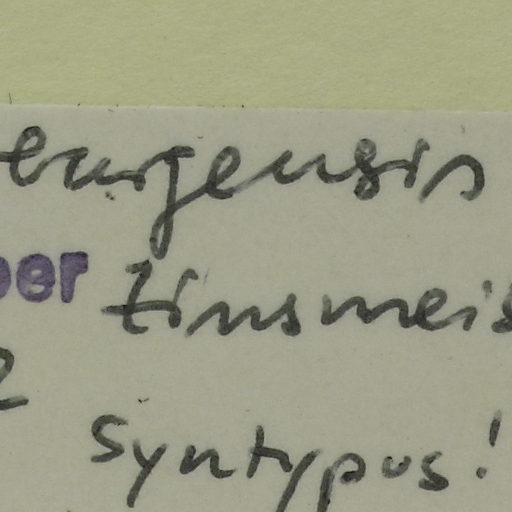 eurgensis
ber Zinsmeis
2
Syntypus!